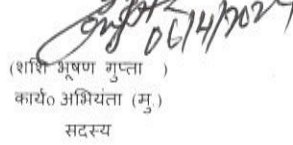 06/4/2021
(शशि भूषण गुप्ता )
कार्य० अभियंता (मु.)
सदस्य